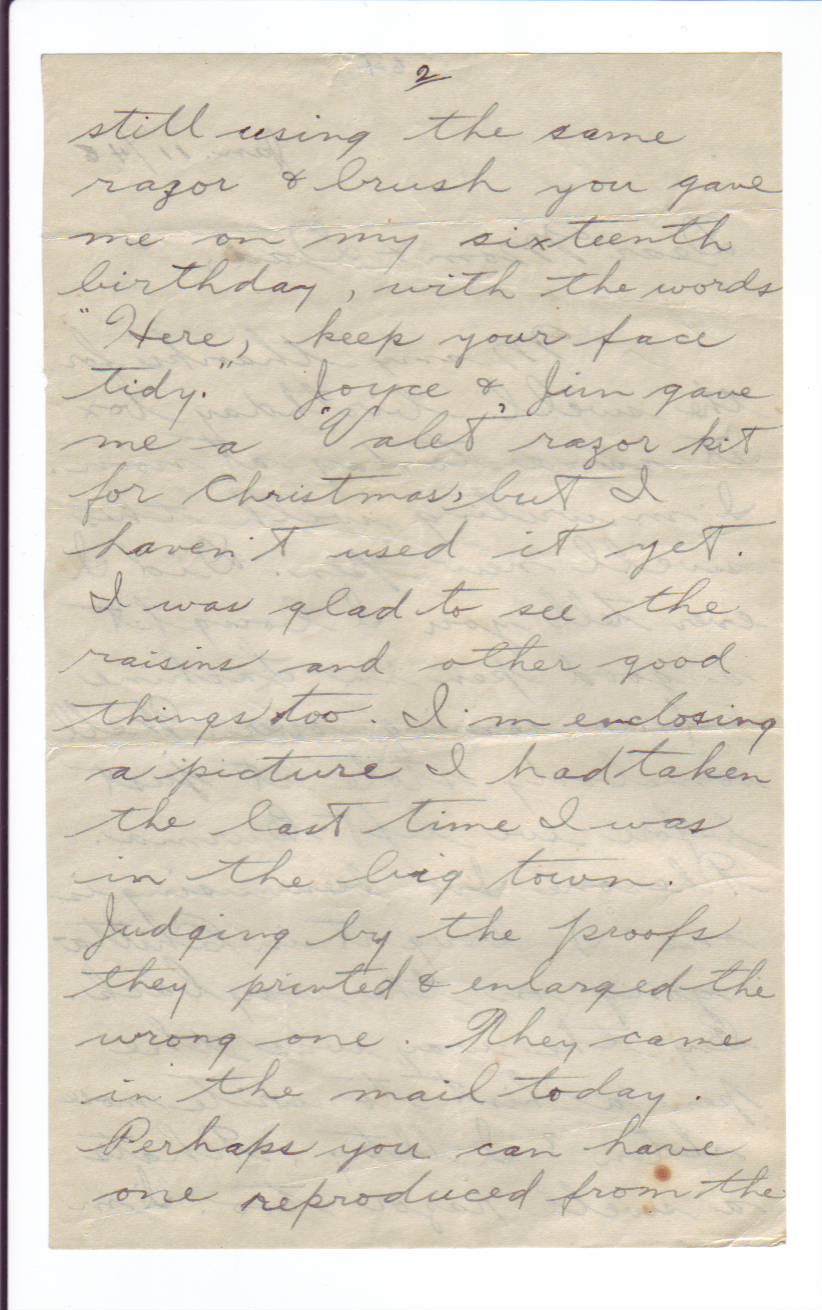 2
still using the same
razor & brush you gave
me on my sixteenth
birthday, with the words
"Here, keep your face
tidy." Joyce & Jim gave
me a "Valet" razor kit
for Christmas, but I
haven't used it yet.
I was glad to see the
raisins and other good
things too. I'm enclosing
a picture I had taken
the last time I was
in the big town.
Judging by the proofs
they printed & enlarged the
wrong one. They came
in the mail today.
Perhaps you can have
one reproduced from the